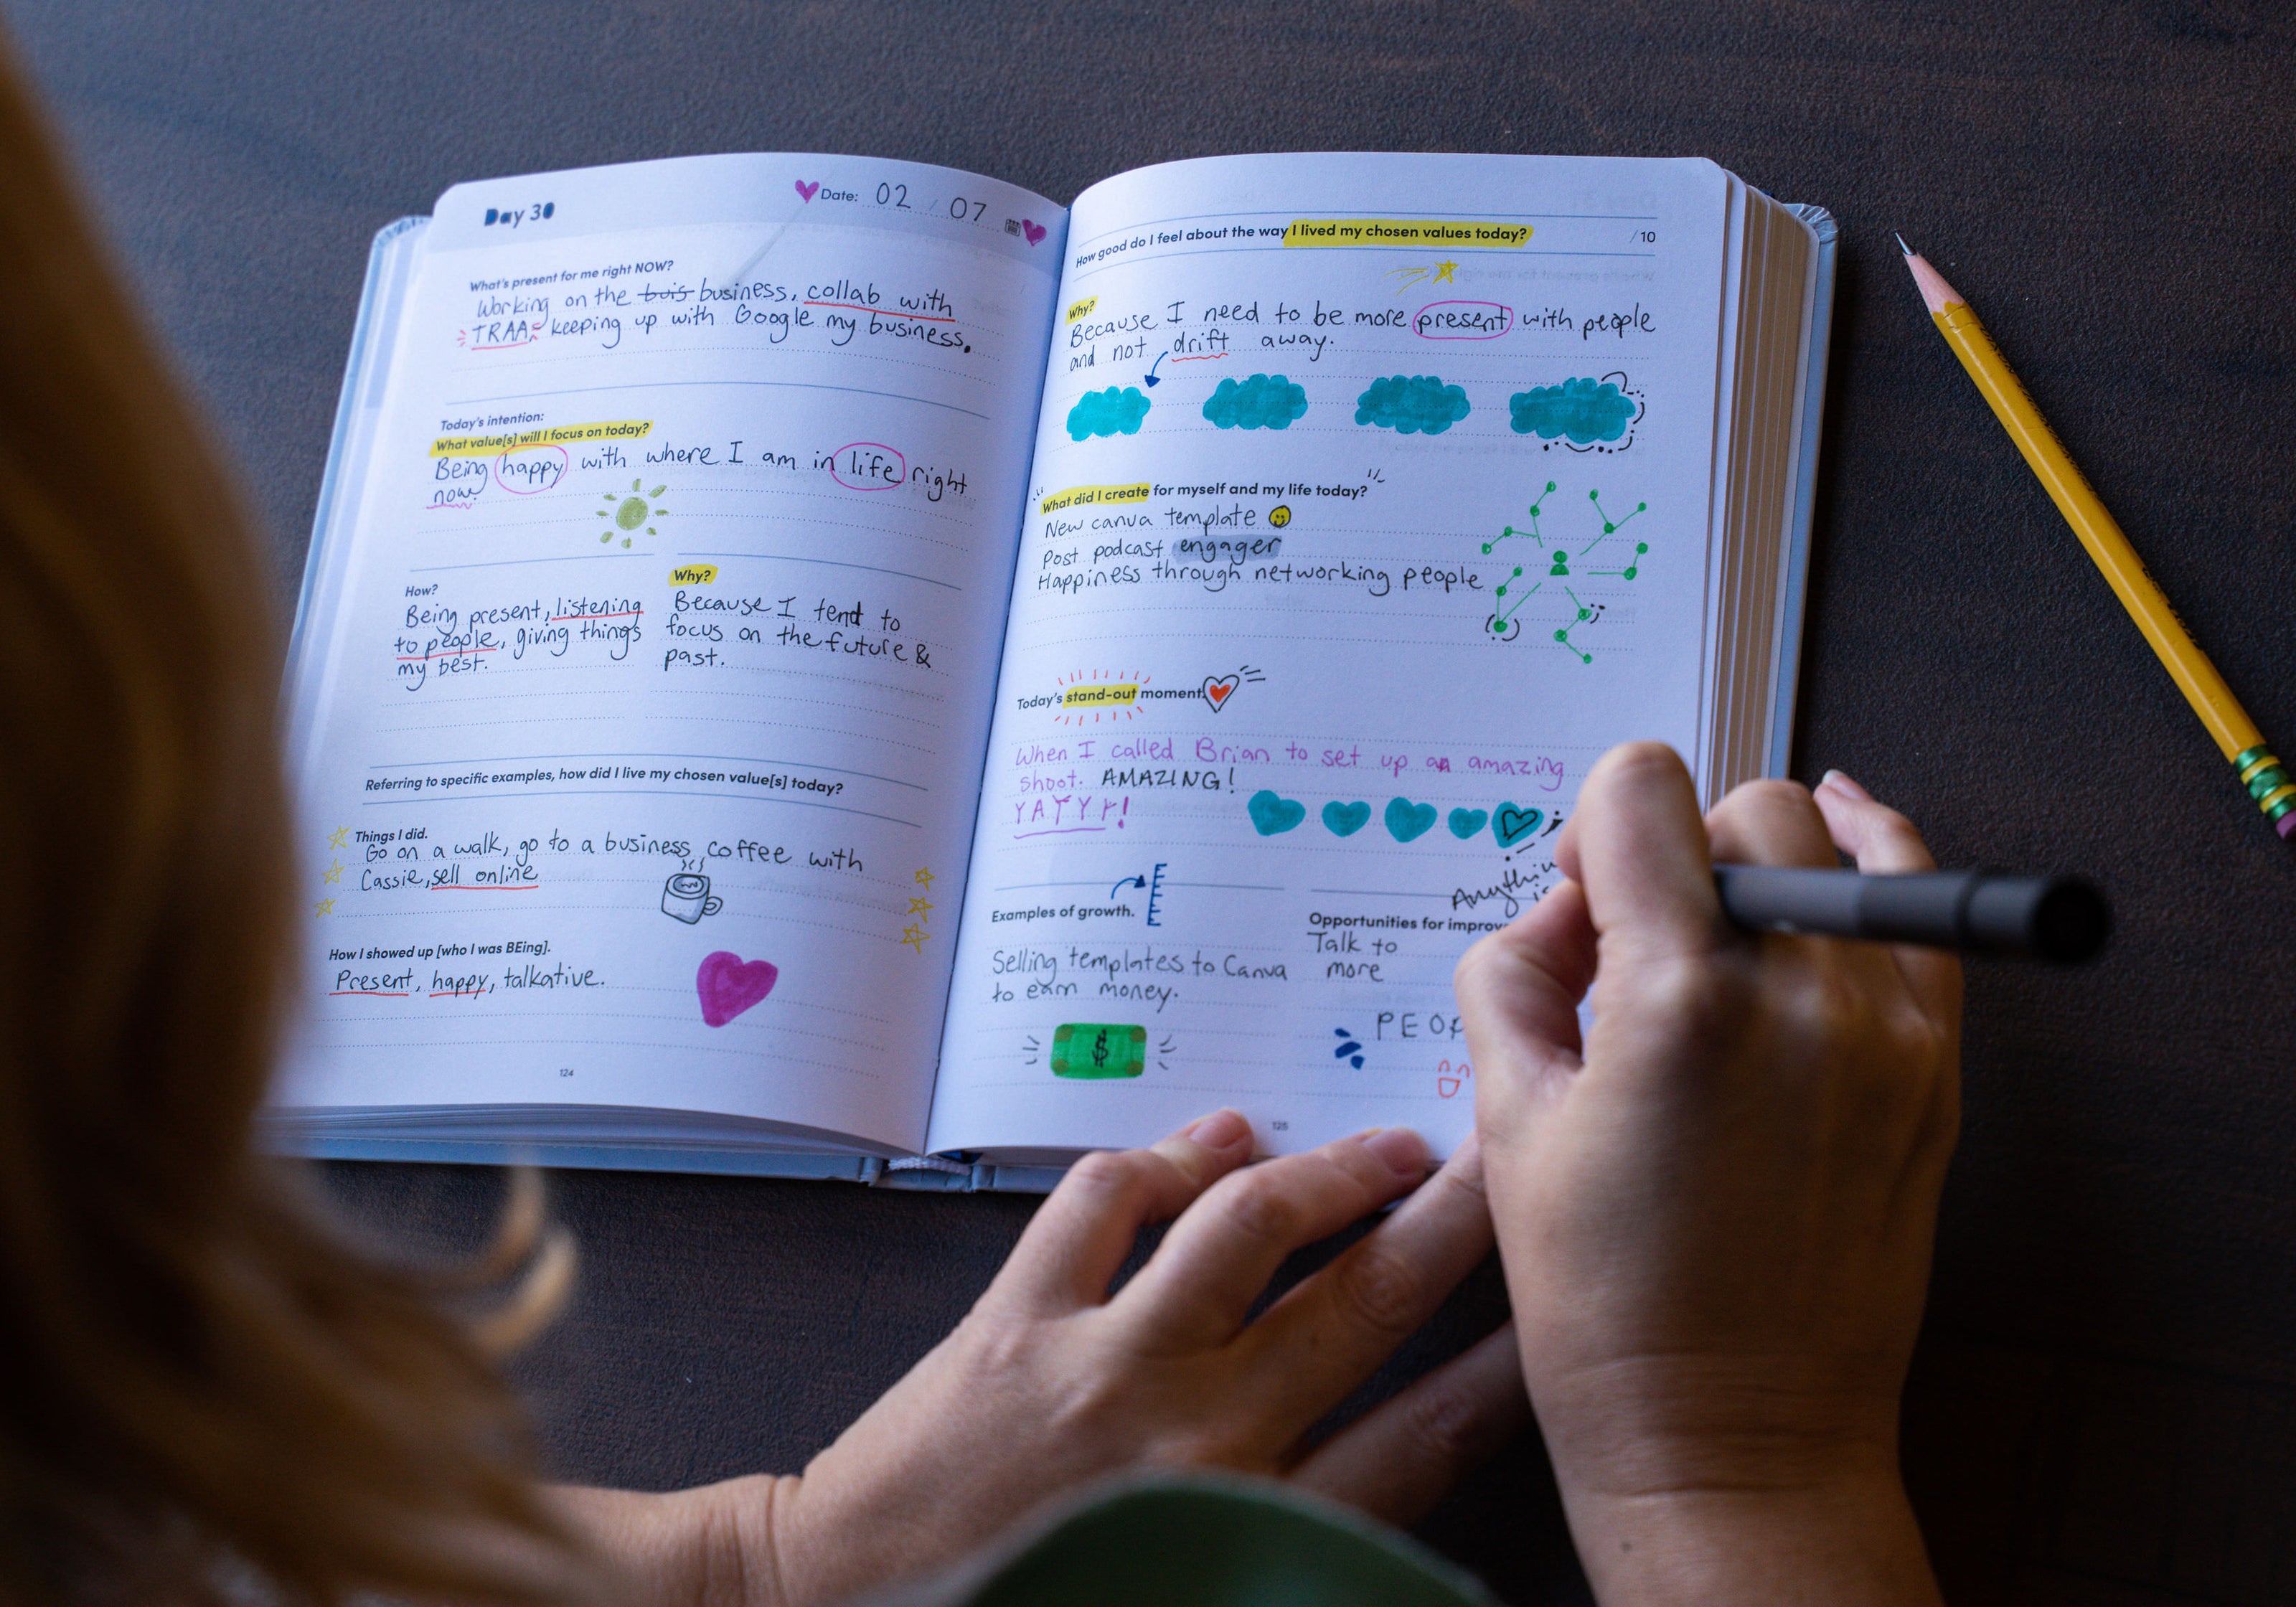 Day 30
Date: 02 / 07
What's present for me right NOW?
Working on the buis business, collab with
TRAA- keeping up with Google my business.
Today's intention:
What value[s] will I focus on today?
Being happy with where I am in life right
now.
How?
Being present, listening
to people, giving things
my best.
Why?
Because I tend to
focus on the future &
past.
Referring to specific examples, how did I live my chosen value[s] today?
Things I did.
Go on a walk, go to a business coffee with
Cassie, sell online
How I showed up [who I was BEing].
Present, happy, talkative.
124
How good do I feel about the way I lived my chosen values today? /10
Why?
Because I need to be more present with people
and not drift away.
What did I create for myself and my life today?
New canva template
Post podcast engager
Happiness through networking people
Today's stand-out moment.
When I called Brian to set up an amazing
shoot. AMAZING!
YAYYY!
Examples of growth.
Selling templates to Canva
to earn money.
$
Anythin
Opportunities for improv
Talk to
more
PEOP
125